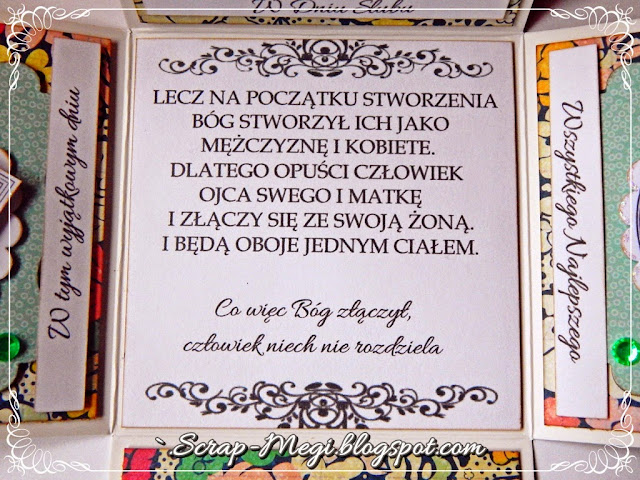 W Dniu Ślubu
W tym wyjątkowym dniu
LECZ NA POCZĄTKU STWORZENIA
BÓG STWORZYŁ ICH JAKO
MĘŻCZYZNĘ I KOBIETE.
DLATEGO OPUŚCI CZŁOWIEK
OJCA SWEGO I MATKĘ
I ZŁĄCZY SIĘ ZE SWOJĄ ŻONĄ.
I BĘDĄ OBOJE JEDNYM CIAŁEM.
Co więc Bóg złączył,
człowiek niech nie rozdziela
Wszystkiego Najlepszego
` Scrap-Megi.blogspot.com